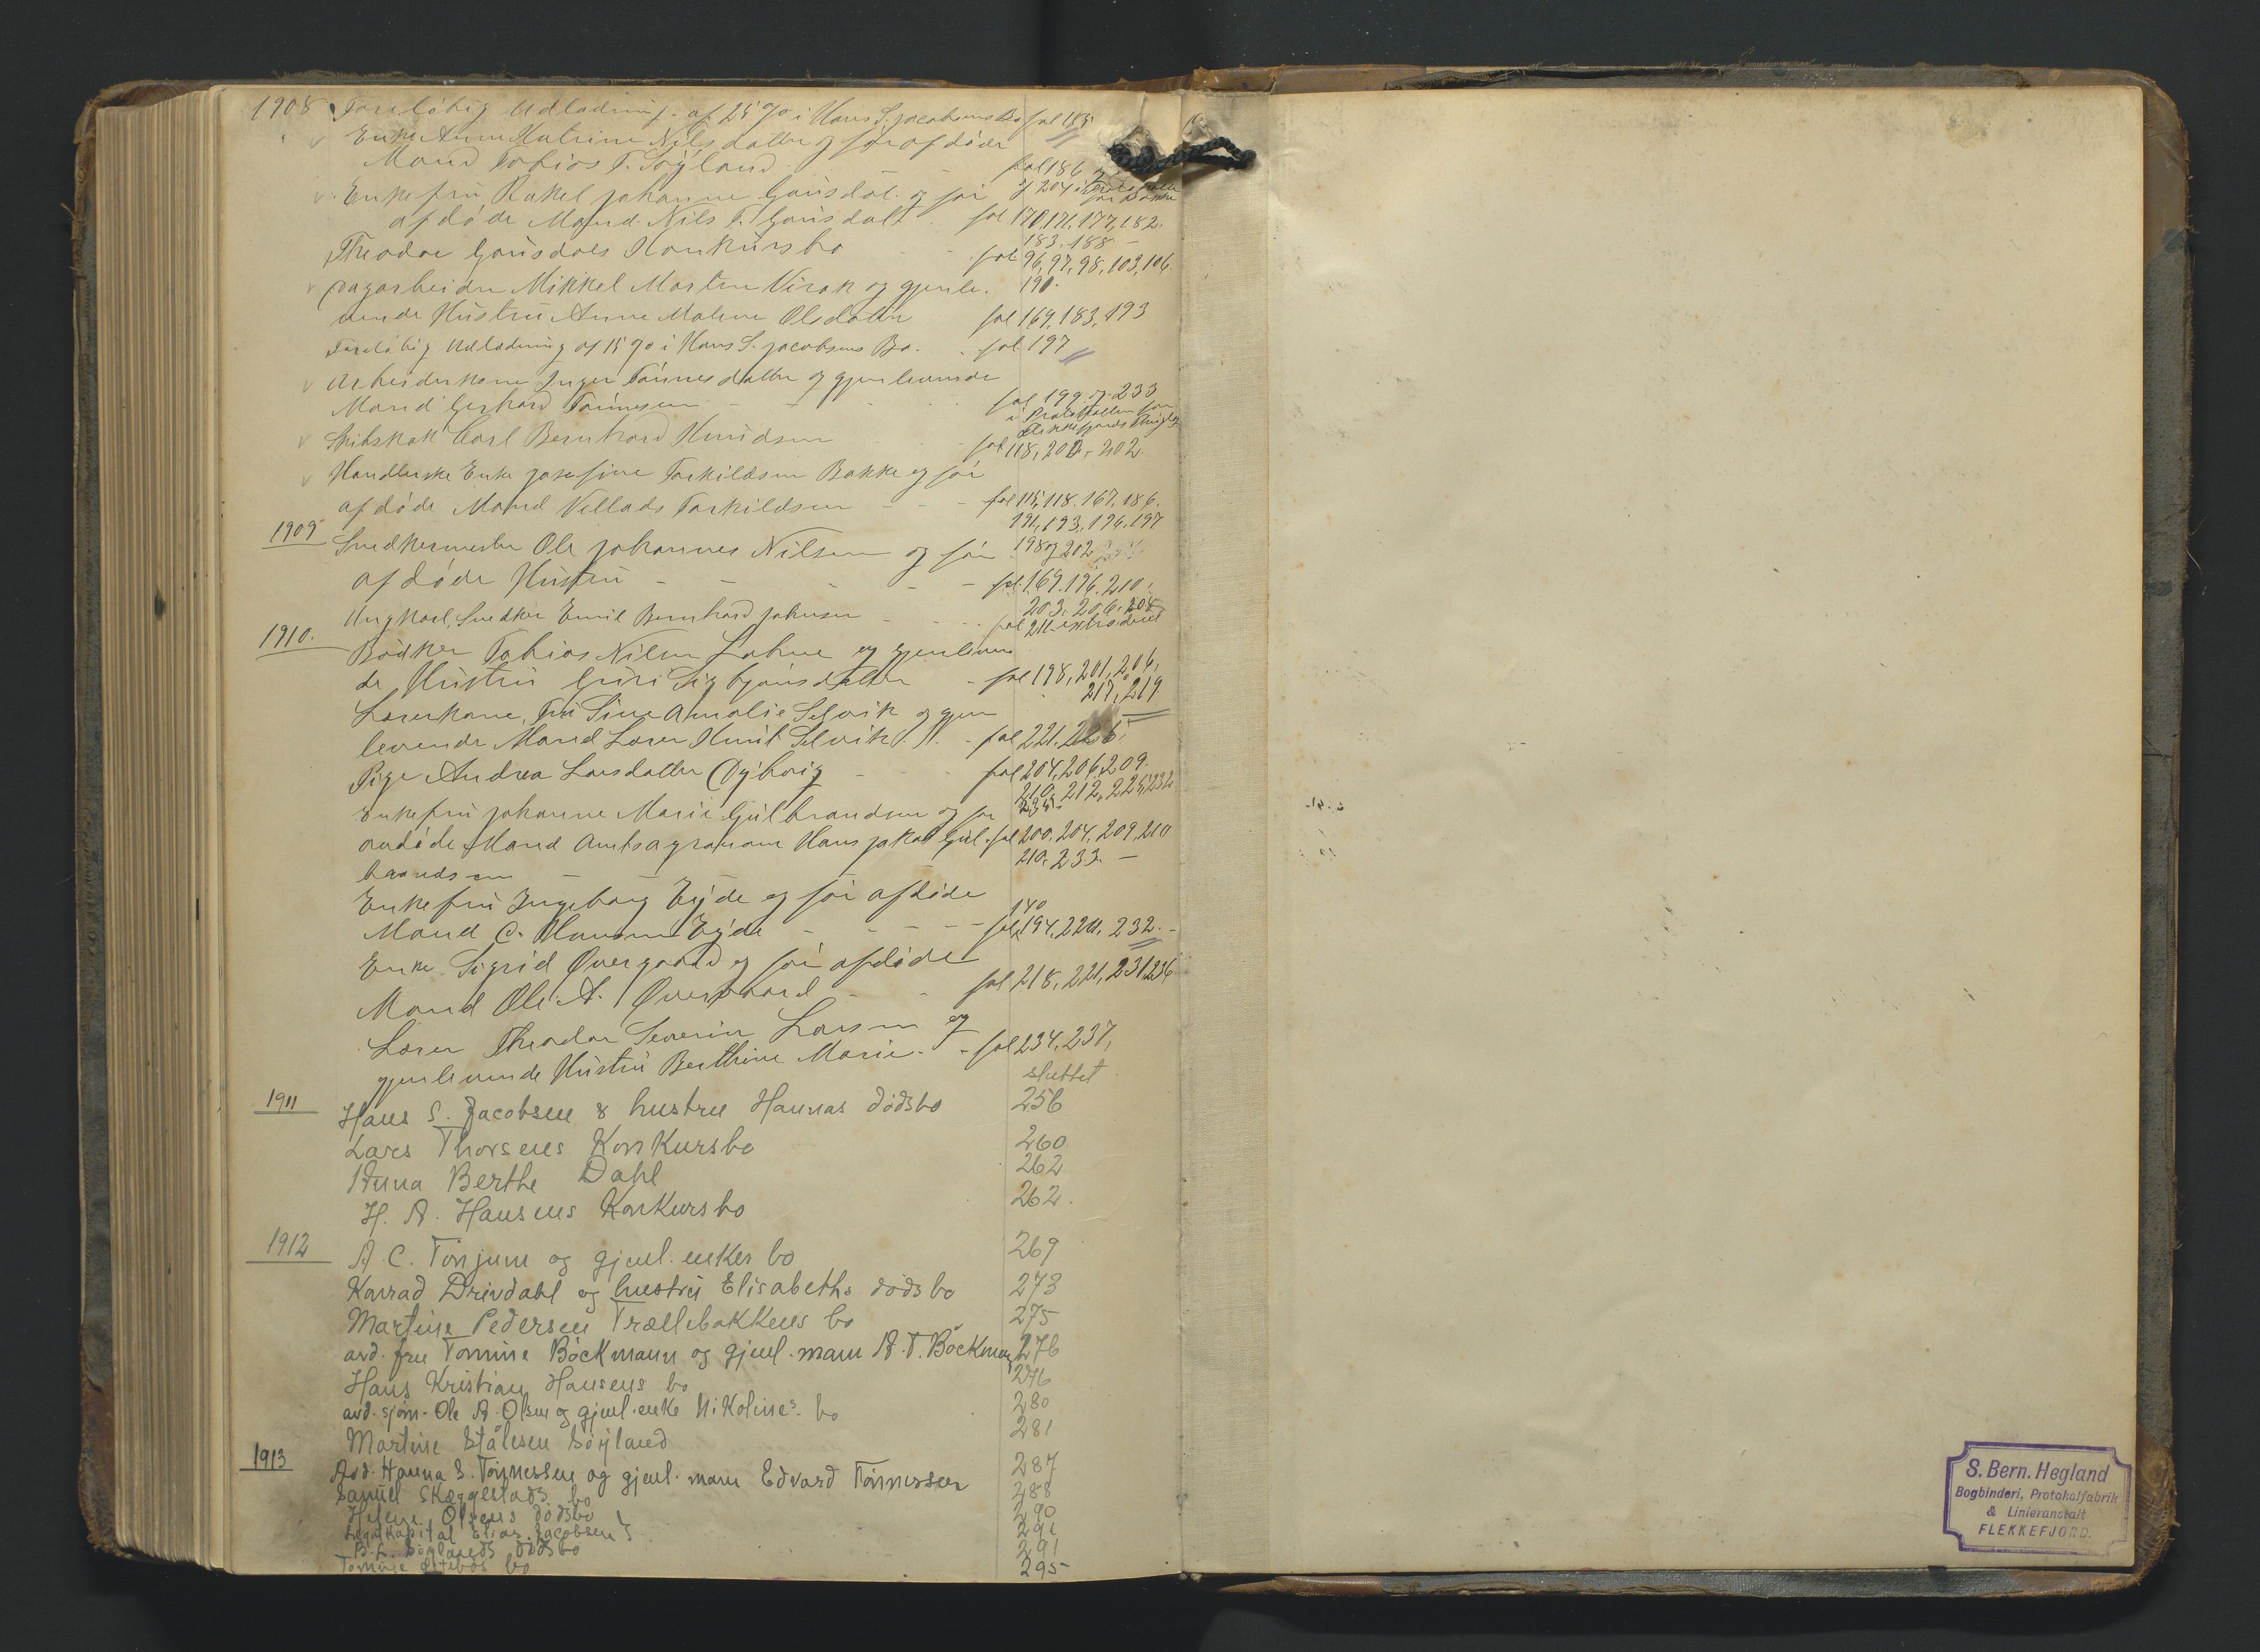 1908 Foreløbig Udlodning af 25 % i Hans S. Jacobsens Bo fol 185
Enke Anne Malene Nilsdatter og før afdøde
Mand Tobias T. Søyland fol 186 og
Enkefru Rakel Johanne Gausdal og før og 204 i
afdøde Mand Nils F. Gausdal fol 170, 171, 177, 182.
183. 188 –
Theodor Gausdals Konkursbo fol 96, 97, 98, 103, 106.
190.
Dagarbeider Mikkel Martin Virak og gjenle-
vende Hustru Anne Malene Olsdatter fol 169, 183, 193
Foreløbig Udlodning af 15 % i Hans S. Jacobsens Bo. fol 197
Arbeiderkone Inger Tønnesdatter og gjenlevende
Mand Gerhard Tønnesen fol 199 og 233
i Protokollen for
Flekkefjords
Skibskok Carl Bernhard Knudsen fol 118, 202, 202.
Handlerske Enke Josefine Torkildsen Bakke og før
afdøde Mand Villads Torkildsen fol 115, 118. 167. 186.
191, 193, 196. 197
198 og 202
1909 Snedkermester Ole Johannes Nilsen og før
afdøde Hustru fol. 169. 196. 210.
203. 206. 208
Ungkarl, Snedker Emil Bernhard Johnsen fol 211 extraderet
1910. Bødker Tobias Nilsen Lohne og gjenleven
de Hustru Guri Sigbjørnsdatter fol 198, 201, 206,
217, 219
Lærerkone, Fru Sine Amalie Selvik og gjen
levende Mand Lærer Knut Selvik fol 221. 226.
Pige Andrea Larsdatter Dyborg fol 204, 206, 209.
210. 212, 225, 232
235
Enkefru Johanne Marie Gulbrandsen og før
avdøde Mand Amtsagronom Hans Jakob Gul- fol 200. 204. 209. 210
210. 233. –
brandsen
Enkefru Ingeborg Eyde og før afdøde
140
Mand C. Hansen Eyde fol 194, 220, 232. –
Enke Sigrid Øvergaard og før afdøde
Mand Ole A. Øvergaard fol 218, 221, 231, 236
Lærer Theodor Severin Larsen og
gjenlevende Hustru Berthine Marie. fol 234, 237,
sluttet
1911 Hans S. Jacobsen & hustru Hannas dødsbo 256
Lars Thorsens Konkursbo 260
Anna Berthe Dahl 262
H. A. Hansens Konkursbo 262.
1912 A. C. Tønjum og gjenl. enkes bo 269
Konrad Drivdahl og hustru Elisabeths dødsbo 273
Martine Pedersen Trællebakkens bo 275
avd. fru Tomine Böckmann og gjenl. mann A. T. Böckmann 276
Hans Kristian Hansens bo 276
avd. sjøm. Ole A. Olsen og gjenl. enke Nikolines bo 280
Martine Stålesen Søyland 281
1913 Avd. Hanna S. Tønnessen og gjenl. mann Edvard Tønnessen 287
Samuel Skeggestads bo 288
Helene Olsens dødsbo 290
Legatkapital Elias Jacobsen 291
B. L. Søylands dødsbo 291
Tomine bo 295
S. Bern. Hegland
Bogbinderi, Protokolfabrik
& Linieranstalt
FLEKKEFJORD.